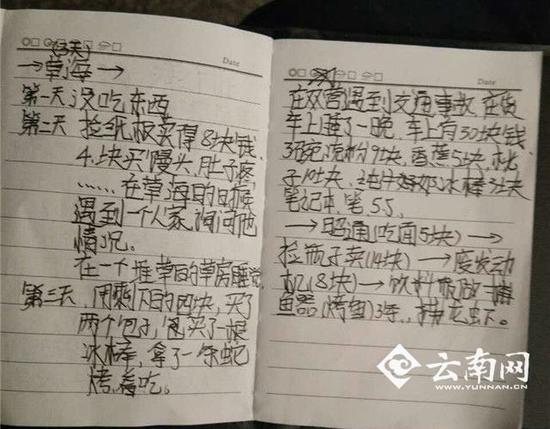 Date
(3天)
→草海→
第一天没吃东西
第二天 捡纸板卖得8块钱.
4块买馒头,肚子疼,
……在草海的时候
遇到一个人家,询问他
情况。
在一个堆草的草房睡觉
第三天,用剩下的四块,买了
两个包子,买了一根
冰棒,拿了一条蛇
烤着吃。
Date
在双营遇到交通事故,在货
车上睡了一晚,车上有30块钱
3碗凉粉9块,香蕉5块,桃
子 块,冰棒3块
笔记本笔5.5,
→昭通(吃面5块)→
捡瓶子卖(14块)→废发动
机(8块)→饮料瓶做捕
鱼器(烤鱼)3年.
云南网
WWW.YUNNAN.CN